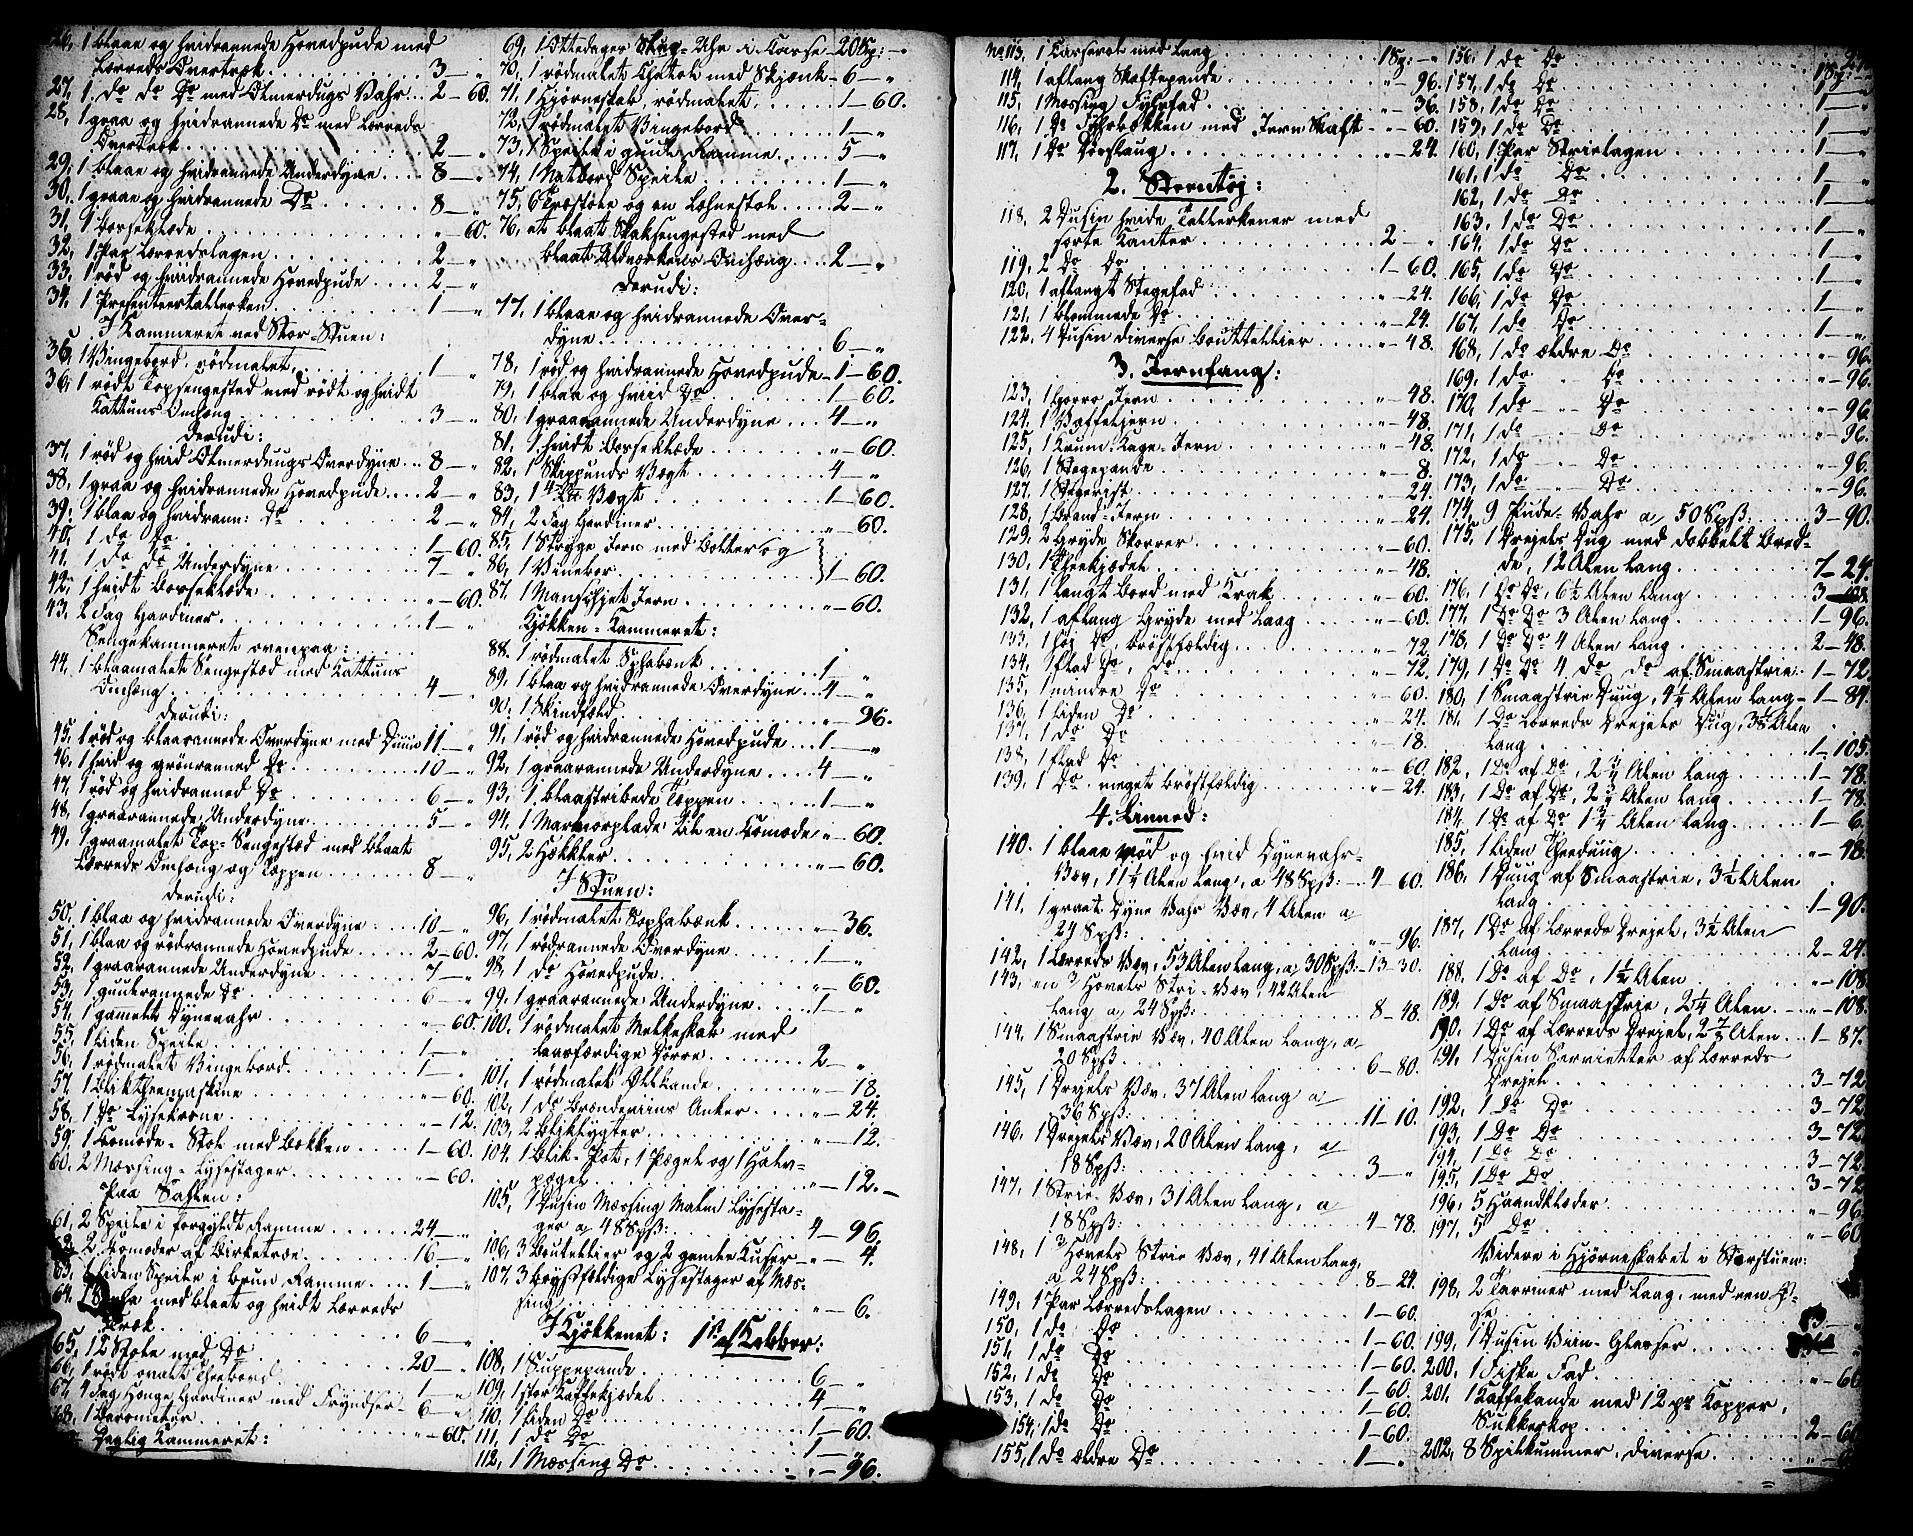 26, 1 blaae og hvidrannede Hovedpude med
Lærreds Overtræk . . . 3 — „
27, 1 do do Do med Olmerdugs Vahr . . 2 — 60.
28, 1 graa og hvidrannede Do med Lærreds
Overtræk . . . 2 — „
29, 1 blaae og hvidrannede Underdyne . . . 8 — „
30, 1 graae og hvidrannede Do . . . 8 — „
31, 1 Børseklæde . . . „ — 60.
32, 1 Par Lærredslagen . . . 2 — „
33, 1 rød og hvidrannede Hovedpude . . . 2 — „
34, 1 Præsenteertallerken . . . 1 — „
I Kammeret ved Stor-Stuen:
35, 1 Vingebord, rødmalet . . . 1 — „
36, 1 rødt Topsengested med rødt og hvidt
Kattuns Omhæng . . . 3 — „
Derudi:
37, 1 rød og hvid Olmerduugs Overdyne . . 8 — „
38, 1 graa og hvidrannede Hovedpude . . . 2 — „
39, 1 blaa og hvidrann: Do . . . 2 — „
40, 1 do Do . . . 1 — 60.
41, 1 do do Underdyne . . . 7 — „
42, 1 hvidt Børseklæde . . . „ — 60.
43, 2 Fag Gardiner . . . 1 — „
Sengekammeret ovenpaa:
44, 1 blaamalet Sengested med Kattuns
Omhæng . . . 4 — „
Derudi:
45, 1 rød og blaarannede Overdyne med Duun 11 — „
46, 1 hvid og grønranned Do . . . 10 — „
47, 1 rød og hvidranned Do . . . 6 — „
48, 1 graarannede Underdyne . . . 5 — „
49, 1 graamalet Top-Sengested med blaat
Lærreds Omhæng og Tæppen . . . 8 — „
Derudi:
50, 1 blaa og hvidrannede Overdyne . . . 10 — „
51, 1 blaa og rødrannede Hovedpude . . . 2 — 60.
52, 1 graarannede Underdyne . . . 7 — „
53, 1 guulrannede Do . . . 6 — „
54, 1 gammelt Dynevahr . . . „ — 60.
55, 1 liden Speile . . . 1 — „
56, 1 rødmalet Vingebord . . . 1 — „
57, 1 Blik Theemaskine . . . „ — 60.
58, 1 Do Lysekrone . . . „ — 12.
59, 1 Comode-Stol med Bækken . . . 1 — 60.
60, 2 Messing-Lysestager . . . „ — 60.
Paa Sahlen:
61, 2 Speile i forgyldt Ramme . . . 24 — „
62, 2 Comoder af Birketræ . . . 16 — „
63, 1 liden Speile i bruun Ramme . . . 1 — „
64, 1 med blaat og hvidt Lærreds
Træk . . . 6 — „
65, 12 Stole med Do . . . 20 — „
66, 1 rødt ovalt Theebord . . . 1 — „
67, 4 Fag Hænge Gardiner med Fryndser — 6 — „
68, 1 Barometer . . . „ — 60.
Daglig Kammeret:
69, 1 Ottedager Slag-Uhr i Casse — 20 Sp: — „
70, 1 rødmalet Chatol med Skjænk — 6 — „
71, 1 Hjørneskab, rødmalet . . . 1 — 60.
72, 1 rødmalet Vingebord . . . 1 — „
73, 1 Speile i guul Ramme . . . 5 — „
74, 1 Natbord Speile . . . 1 — „
75, 6 Træstole og en Læhnestol . . . 2 — „
76, et blaat Slaksengested med
blaat Uldværkens Omhæng . . . 2 — „
Derudi:
77, 1 blaae og hvidrannede Over-
dyne . . . 6 — „
78, 1 rød og hvidrannede Hovedpude — 1 — 60.
79, 1 blaa og hviid Do . . . 1 — 60.
80, 1 graarannede Underdyne . . . 4 — „
81, 1 hvidt Børseklæde . . . „ — 60.
82, 1 Skippunds Vægt . . . 4 — „
83, 1 4 Vægt . . . 1 — 60.
84, 2 Fag Gardiner . . . „ — 60.
85, 1 Stryge Jern med Bolter og
86, 1 Vinebor . . . 1 — 60.
87, 1 Manschjet Jern . . . „ — 60.
Kjøkken-Kammeret:
88, 1 rødmalet Sophabænk . . . 1 — „
89, 1 blaa og hvidrannede Overdyne . . . 4 — „
90, 1 Skindfeld . . . „ — 96.
91, 1 rød og hvidrannede Hovedpude . . . 1 — „
92, 1 graarannede Underdyne . . . 4 — „
93, 1 blaastribede Tæppen . . . 1 — „
94, 1 Marmorplade til en Comode „ — 60.
95, 2 Hækkler . . . „ — 60.
I Stuen:
96, 1 rødmalet Sophabænk . . . „ — 36.
97, 1 rødrannede Overdyne . . . 1 — „
98, 1 do Hovedpude . . . „ — 60.
99, 1 graarannede Underdyne . . . 1 — „
100, 1 rødmalet Melkeskab med
laasfærdige Dørre . . . 2 — „
101, 1 rødmalet Ølkande . . . „ — 18.
102, 1 do Brændeviins Anker . . . „ — 24.
103, 2 Bliklygter . . . „ — 12.
104, 1 Blik-Pot, 1 Pægel og 1 Halv-
pægel . . . „ — 12. —
105, 1 Dusin Messing Malm Lysesta-
ger a 48 Spß: . . . 4 — 96.
106, 3 Boutellier og 2 gamle Kufer — „ — 4.
107, 3 brøstfældige Lysestager af Mes-
sing . . . „ — 6.
I Kjøkkenet: 1o af Kobber:
108, 1 Suppepande . . . 6 — „
109, 1 stor Kaffekjædel . . . 4 — „
110, 1 liden Do . . . 1 — 60.
111, 1 do Do . . . 1 — „
112, 1 Messing Do . . . „ — 96.
No 113, 1 Casserol med Laag . . . 1 Sp: — „
114, 1 aflang Skaftepande . . . „ — 96.
115, 1 Messing Fyhrfad . . . „ — 36.
116, 1 Do Fyhrbækken med Jern Skaft — „ — 60.
117, 1 Do Dørslaug . . . „ — 24.
2. Steentøj:
118, 2 Dusin hvide Tallerkener med
sorte Kanter . . . 2 — „
119, 2 Do Do . . . 1 — 60.
120, 1 aflangt Stegefad . . . „ — 24.
121, 1 blommede Do . . . „ — 24.
122, 4 Dusin diverse Bouttellier . . . „ — 48.
3. Jernfang:
123, 1 Gorro Jern . . . „ — 48.
124, 1 Vaffeljern . . . „ — 48.
125, 1 Krum Kage-Jern . . . „ — 48.
126, 1 Stegepande . . . „ — 8.
127, 1 Stegerist . . . „ — 24.
128, 1 Brand-Jern . . . „ — 24.
129, 2 Gryde Skorrer . . . „ — 60.
130, 1 Theekjædel . . . „ — 48.
131, 1 langt Bord med Krak . . . „ — 60.
132, 1 aflang Gryde med Laag . . . „ — 60.
133, 1 høj Do brøstfældig . . . „ — 72.
134, 1 flad Do, do . . . „ — 72.
135, 1 mindre Do . . . „ — 60.
136, 1 liden Do . . . „ — 24.
137, 1 do Do . . . „ — 18.
138, 1 flad Do . . . „ — 60.
139, 1 Do meget brøstfældig . . . „ — 24.
4. Linned:
140, 1 blaae rød og hvid Dynevahrs-
Væv, 11 1/4 Alen lang, a 48 Spß: — 4 — 60.
141, 1 graat Dyne Vahrs Væv, 4 Alen a
24 Spß: . . . „ — 96.
142, 1 Lærreds Væv, 53 Alen lang, a 30 Spß: — 13 — 30.
143, en 3 Hovels Strie-Væv, 42 Alen
lang a 24 Spß: . . . 8 — 48.
144, 1 Smaastrie Væv, 40 Alen lang, a
20 Spß . . . 6 — 80.
145, 1 Drejels Væv, 37 Alen lang a
36 Spß: . . . 11 — 10.
146, 1 Drejels Væv, 20 Alen lang, a
18 Spß: . . . 3 — „
147, 1 Strie-Væv, 31 Alen lang, a
18 Spß: . . . 4 — 78.
148, 1 3 Hovels Strie Væv, 41 Alen lang,
a 24 Spß: . . . 8 — 24.
149, 1 Par Lærredslagen . . . 1 — 60.
150, 1 do Do . . . 1 — 60.
151, 1 do Do . . . 1 — 60.
152, 1 do Do . . . 1 — 60.
153, 1 do Do . . . 1 — 60.
154, 1 do Do . . . 1 — 60.
155, 1 do ældre Do . . . 1 — „
156, 1 do Do . . . 1 Sp: —
157, 1 do Do . . . 1 — „
158, 1 do Do . . . 1 — „
159, 1 do Do . . . 1 — „
160, 1 Par Strielagen . . . 1 — „
161, 1 do Do . . . 1 — „
162, 1 do Do . . . 1 — „
163, 1 do Do . . . 1 — „
164, 1 do Do . . . 1 — „
165, 1 do Do . . . 1 — „
166, 1 do Do . . . 1 — „
167, 1 do Do . . . 1 — „
168, 1 do ældre Do . . . „ — 96.
169, 1 do „ Do . . . „ — 96.
170, 1 do — „ — Do . . . „ — 96.
171, 1 do Do . . . „ — 96.
172, 1 do — „ Do . . . „ — 96.
173, 1 do „ Do . . . „ — 96.
174, 9 Pude-Vahr a 50 Spß: . . . 3 — 90.
175, 1 Drejels Dug med dobbelt Bred-
de, 12 Alen lang . . . 7 — 24.
176, 1 Do Do, 6 1/2 Alen lang . . . 3 — 108.
177, 1 Do Do 3 Alen lang . . . 1 — 96.
178, 1 Do Do 4 Alen lang . . . 2 — 48.
179, 1 Do Do 4 do do af Smaastrie . 1 — 72.
180, 1 Smaastrie Duug, 4 1/2 Alen lang — 1 — 84.
181, 1 Do Lærreds Drejels Dug, 3 3/4 Alen
lang . . . 1 — 105.
182, 1 Do af Do, 2 3/4 Alen lang . . . 1 — 78.
183, 1 Do af Do, 2 3/4 Alen lang . . . 1 — 78.
184, 1 Do af Do 1 3/4 Alen lang . . . 1 — 6.
185, 1 liden Theeduug . . . „ — 48.
186, 1 Duug af Smaastrie, 3 1/2 Alen
lang . . . 1 — 90.
187, 1 Do af Lærreds Drejel, 3 1/2 Alen
lang . . . 2 — 24.
188, 1 Do af Do, 1 1/2 Alen . . . „ — 108.
189, 1 Do af Smaastrie, 2 1/4 Alen . . . „ — 108.
190, 1 Do af Lærreds Drejel, 2 7/8 Alen . . 1 — 87.
191, 1 Dusin Servietter af Lærreds
Drejel . . . 3 — 72.
192, 1 Do Do . . . 3 — 72.
193, 1 Do Do . . . 3 — 72.
194, 1 Do Do . . . 3 — 72.
195, 1 Do Do . . . 3 — 72.
196, 5 Haandklæder . . . „ — 96.
197, 5 Do . . . „ — 60.
Videre i Hjørneskabet i Storstuen:
198, 2 Tarriner med Laag, med een
199, 1 Dusin Viin-Glasser
200, 1 Fiske Fad . . . „ — 60.
201, 1 Kaffekande med 12 pr Kopper,
Sukkerkop . . . 2 — 60.
202, 8 Spilkummer, diverse . . . „ —